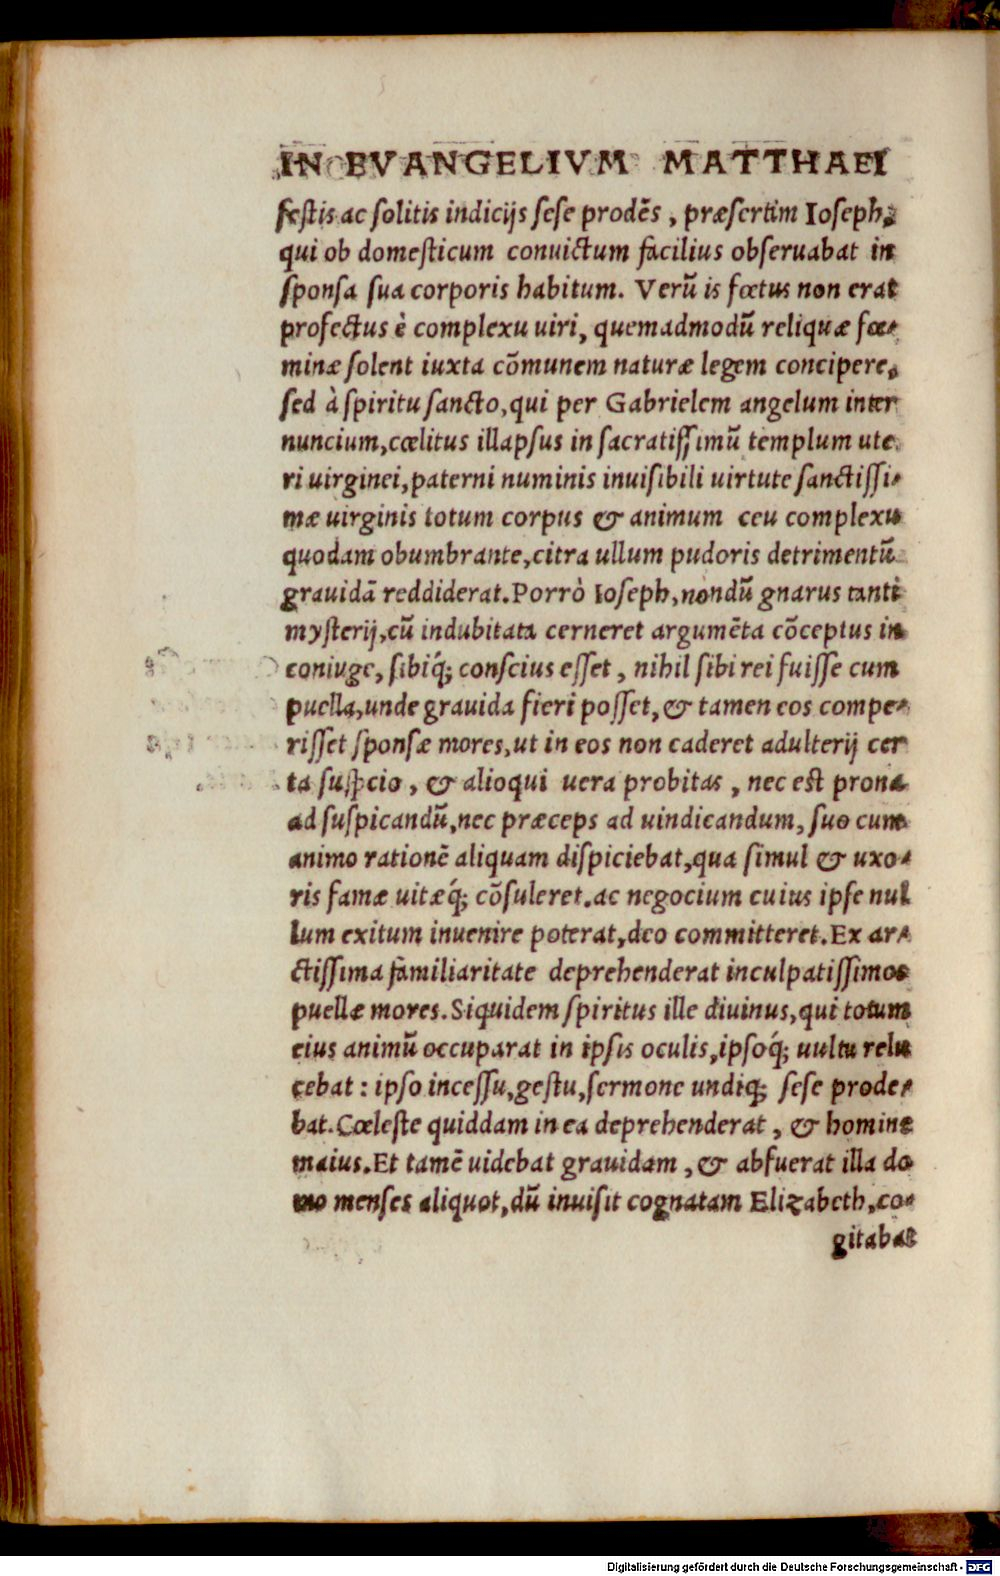 IN EVANGELIVM MATTHAEI
festis ac solitis indicijs sese prodẽs, præsertim Ioseph,
qui ob domesticum conuictum facilius obseruabat in
sponsa sua corporis habitum. Verũ is fœtus non erat
profectus è complexu uiri, quemadmodũ reliquæ fœ-
minæ solent iuxta cõmunem naturæ legem concipere,
sed à spiritu sancto, qui per Gabrielem angelum inter
nuncium, cœlitus illapsus in sacratissimũ templum ute
ri uirginei, paterni numinis inuisibili uirtute sanctissi-
mæ uirginis totum corpus & animum ceu complexu
quodam obumbrante, citra ullum pudoris detrimentũ
grauidã reddiderat. Porrò Ioseph, nondũ gnarus tanti
mysterij, cũ indubitata cerneret argumẽta cõceptus in
coniuge, sibiq́; conscius esset, nihil sibi rei fuisse cum
puella, unde grauida fieri posset, & tamen eos compe-
risset sponsæ mores, ut in eos non caderet adulterij cer
ta suspcio, & alioqui uera probitas, nec est prona
ad suspicandũ, nec præceps ad uindicandum, suo cum
animo rationẽ aliquam dispiciebat, qua simul & uxo-
ris famæ uitæq́; cõsuleret. ac negocium cuius ipse nul
lum exitum inuenire poterat, deo committeret. Ex ar-
ctissima familiaritate deprehenderat inculpatissimos
puellæ mores. Siquidem spiritus ille diuinus, qui totum
eius animũ occuparat in ipsis oculis, ipsoq́; uultu relu
cebat: ipso incessu, gestu, sermone undiq; sese prode-
bat. Cœleste quiddam in ea deprehenderat, & homine
maius. Et tamẽ uidebat grauidam, & abfuerat illa do
mo menses aliquot, dũ inuisit cognatam Elizabeth, co-
gitabat
Digitalisierung gefördert durch die Deutsche Forschungsgemeinschaft - DFG